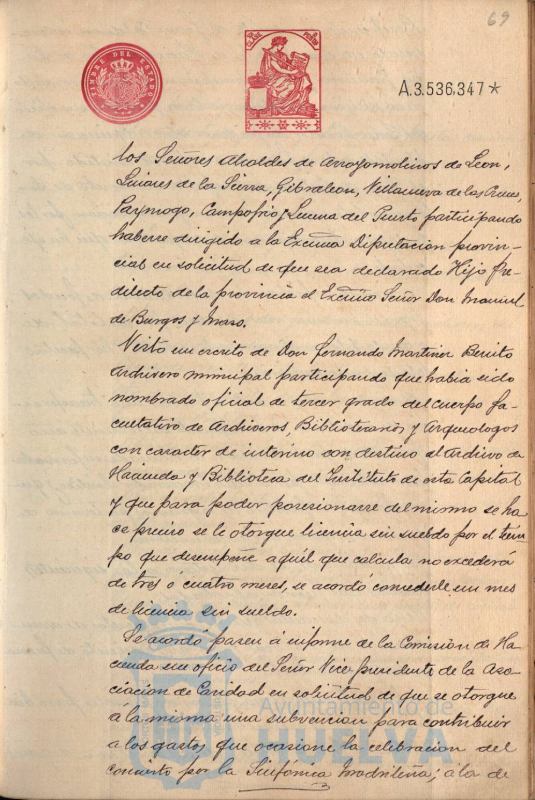 69
TIMBRE DEL ESTADO
A.3.536,347*
los Señores Alcaldes de Arroyomolinos de Leon,
Linares de la Sierra, Gibraleon, Villanueva de las Cruces,
Paymogo, Campofrio y Lucena del Puerto participando
haberse dirigido a la Excma Diputacion provin-
cial en solicitud de que sea declarado Hijo Pre-
dilecto de la provincia el Excmo Señor Don Manuel
de Burgos y Mazo.
Visto un escrito de Don Fernando Martinez Benito
Archivero municipal participando que habia sido
nombrado oficial de tercer grado del cuerpo fa-
cultativo de Archiveros, Bibliotecarios y Arqueologos
con caracter de interino con destino al Archivo de
Hacienda y Biblioteca del Instituto de esta Capital
y que para poder posesionarse del mismo se ha-
ce preciso se le otorgue licencia sin sueldo por el tiem-
po que desempeñe aquél que calcula no excederá
de tres ó cuatro meses, se acordó concederle un mes
de licencia sin sueldo.
Se acordó pasen á informe de la Comisión de Ha-
cienda un oficio del Señor Vice presidente de la Aso-
ciacion de Caridad en solicitud de que se otorgue
á la misma una subvencion para contribuir
a los gastos que ocasione la celebracion del
concierto por la Sinfónica Madrileña; á la de
Ayuntamiento de
HUELVA